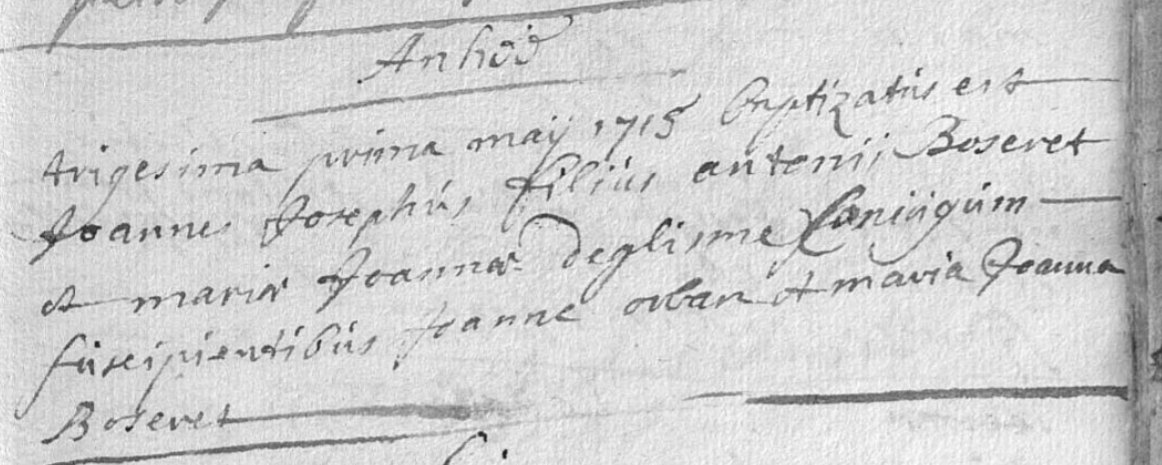 Anhéé
trigesima prima maÿ 1715 baptizatus est
Joannes Josephus filius antonii Boseret
et mariæ Joannæ Deglisme Coniugum
suscipientibus Joanne orban et maria Joanna
Boseret